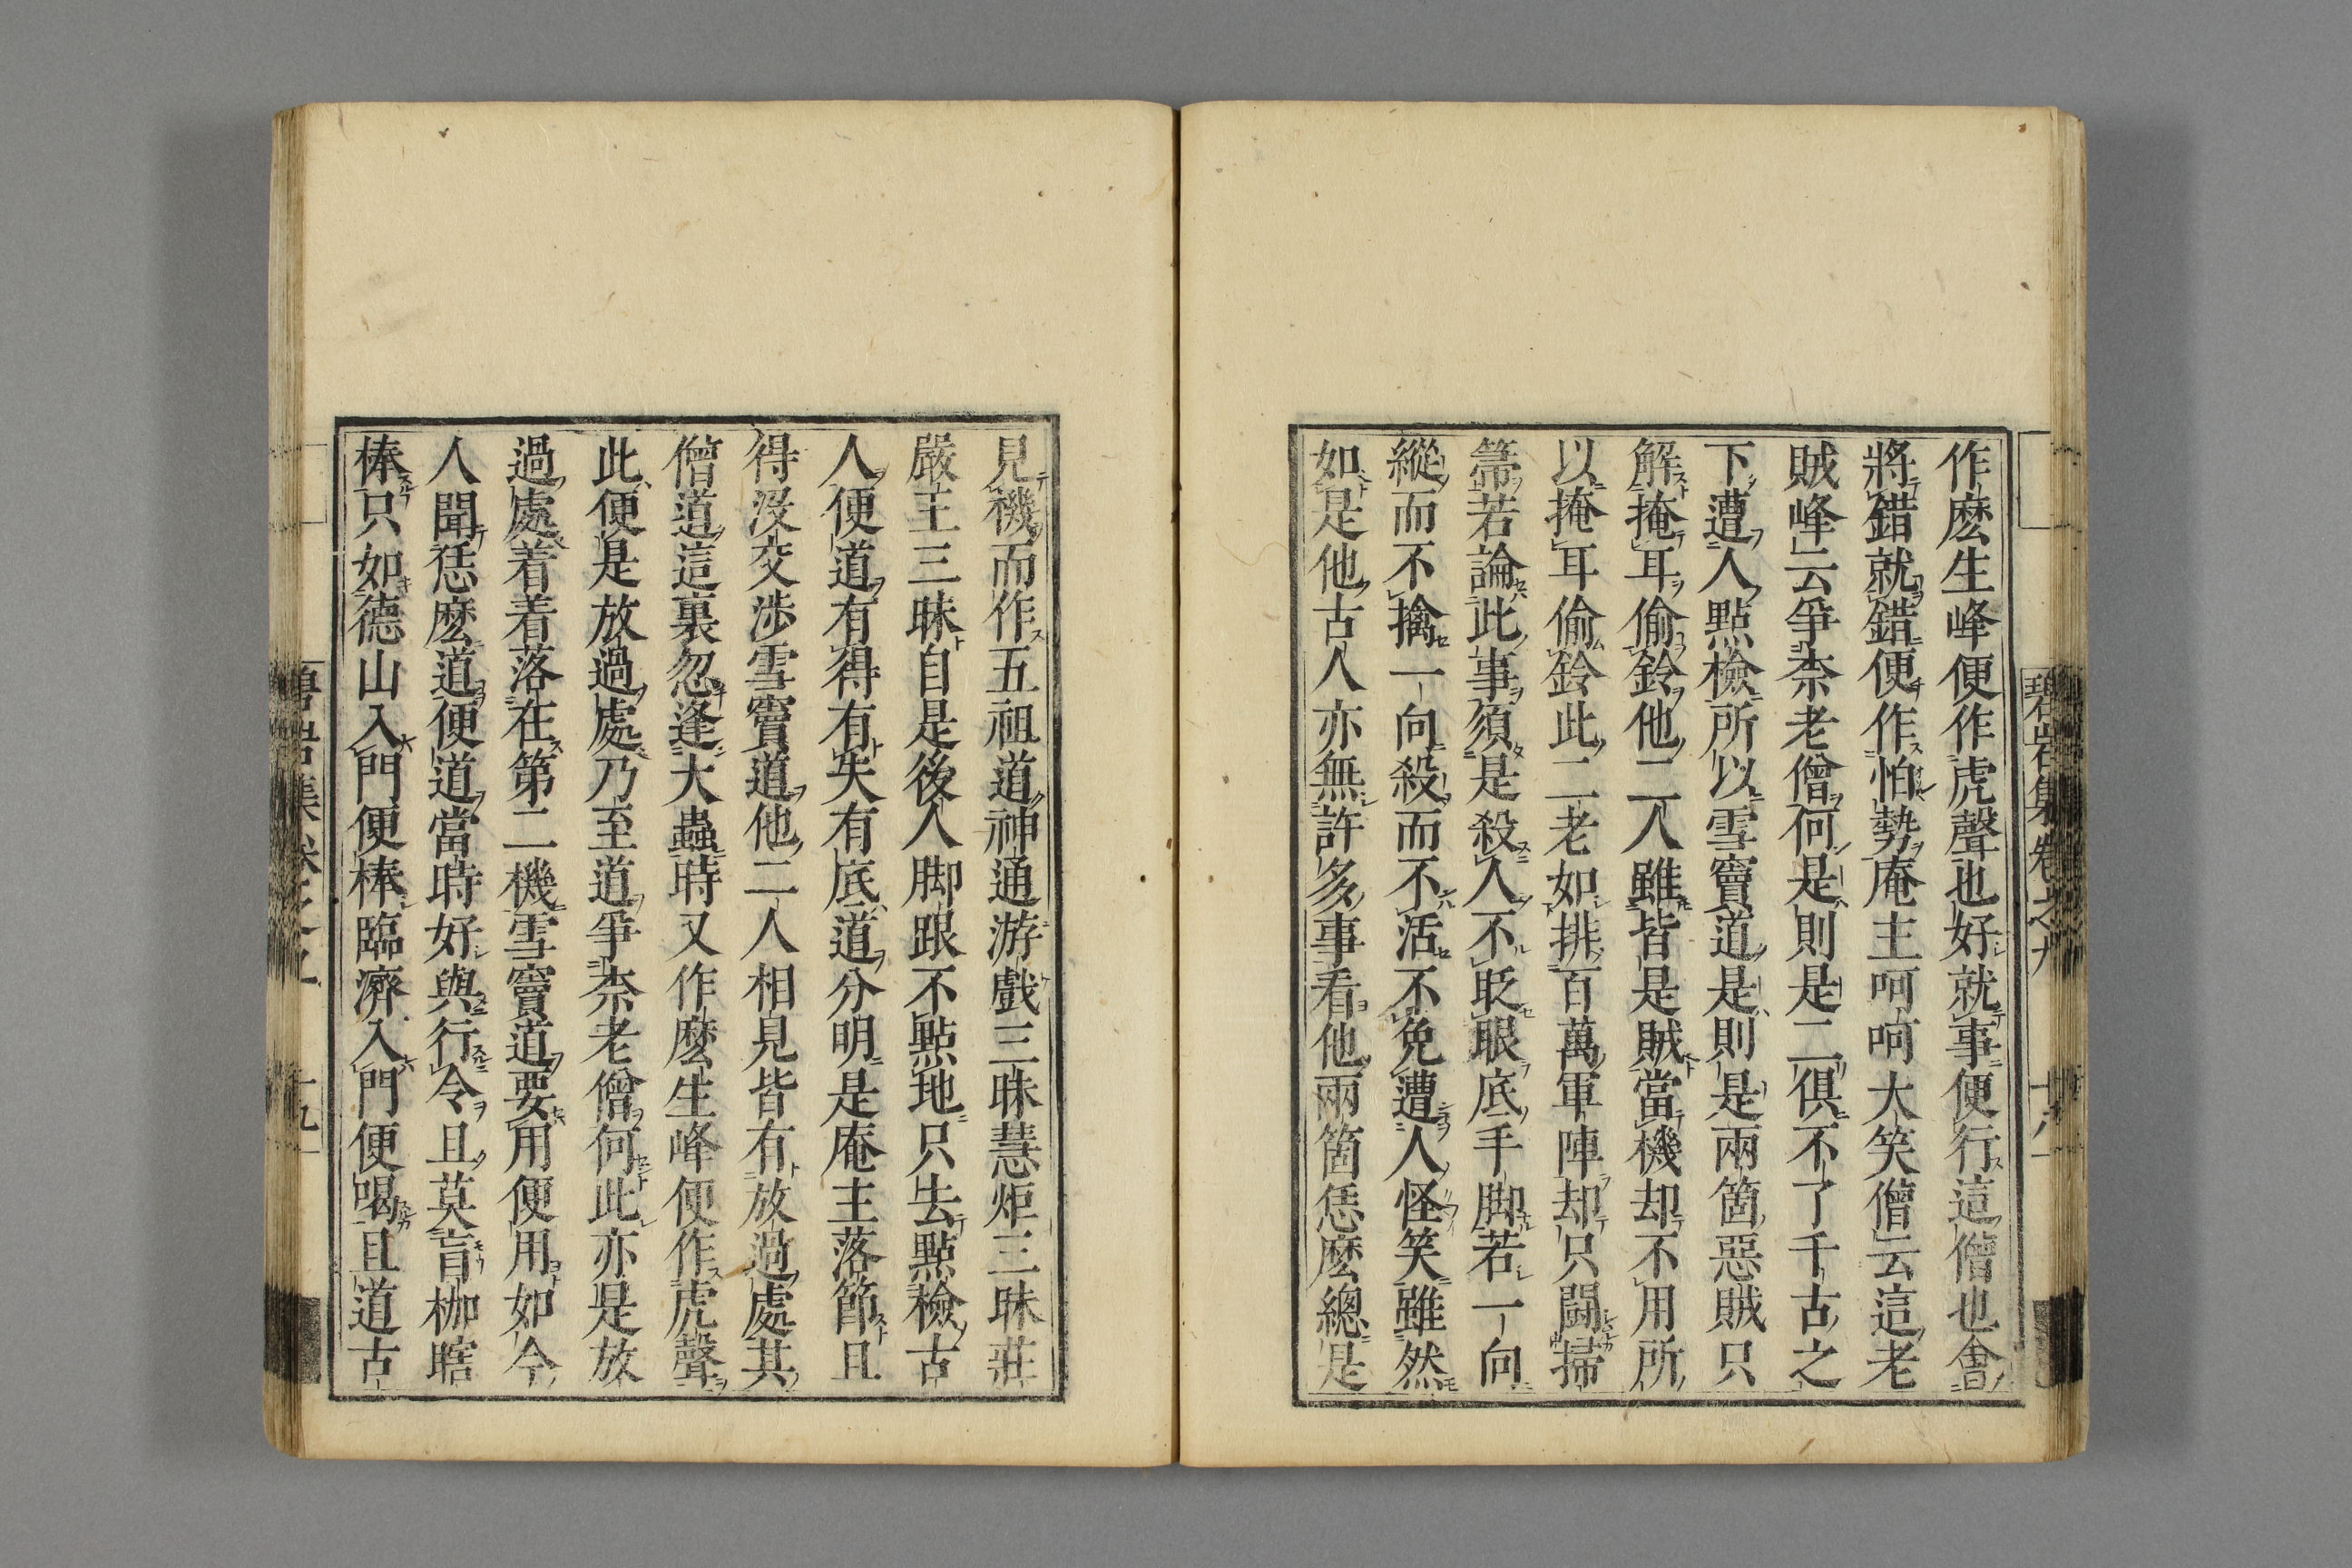 碧岩集卷之九
十八
作麽生峰便作虎聲也好就事便行這僧也會
將錯就錯便作怕勢庵主呵呵大笑僧云這老
賊峰云爭柰老僧何是則是二俱不了千古之
下遭人點檢所以雪竇道是則是兩箇惡賊只
解掩耳偷鈴他二人雖皆是賊當機却不用所
以掩耳偷鈴此二老如排百萬軍陣却只鬪掃
箒若論此事須是殺人不眨眼底手脚若一向
縱而不擒一向殺而不活不免遭人怪笑雖然
如是他古人亦無許多事看他兩箇恁麽總是
見機而作五祖道神通游戲三昧慧炬三昧莊
嚴王三昧自是後人脚跟不點地只去點檢古
人便道有得有失有底道分明是庵主落節且
得沒交涉雪竇道他二人相見皆有放過處其
僧道這裏忽逢大蟲時又作麽生峰便作虎聲
此便是放過處乃至道爭柰老僧何此亦是放
過處着着落在第二機雪竇道要用便用如今
人聞恁麽道便道當時好與行令且莫盲枷瞎
棒只如德山入門便棒臨濟入門便喝且道古
十九